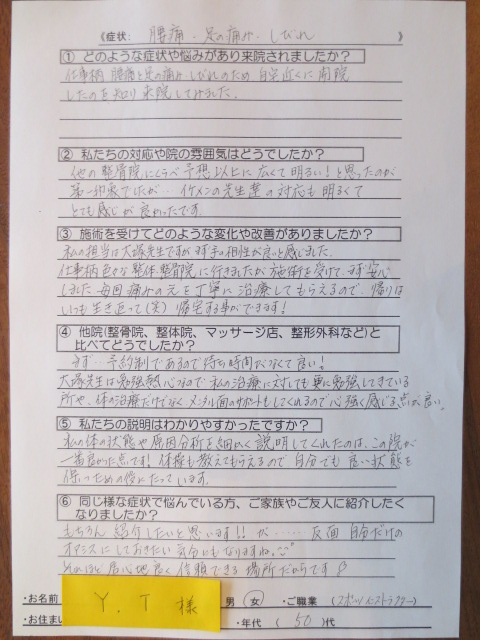 《症状: 腰痛・足の痛み・しびれ 》
① どのような症状や悩みがあり来院されましたか?
仕事柄 腰痛と足の痛み・しびれのため 自宅近くに開院
したのを知り来院してみました。
② 私たちの対応や院の雰囲気はどうでしたか?
他の整骨院にくらべ予想以上に広くて明るい!と思ったのが
第一印象でしたが…イケメンの先生達の対応も明るくて
とても感じが良かったです。
③ 施術を受けてどのような変化や改善がありましたか?
私の担当は大塚先生ですがまず手の相性が良いと感じました。
仕事柄色々な整体、整骨院に行きましたが施術を受けて、まず安心
しました。毎回痛みの元を丁寧に治療してもらえるので、帰りは
いつも生き返って(笑)帰宅する事ができます!
④ 他院(整骨院、整体院、マッサージ店、整形外科など)と
比べてどうでしたか?
まず…予約制であるので待ち時間がなくて良い!
大塚先生は勉強熱心なので 私の治療に対しても更に勉強してきている
所や、体の治療だけでなくメンタル面のサポートもしてくれるので心強く感じる点が良い。
⑤ 私たちの説明はわかりやすかったですか?
私の体の状態や原因分析を細かく説明してくれたのは、この院が
一番良かった点です!体操も教えてもらえるので自分でも良い状態を
保つための役にたっています。
⑥ 同じ様な症状で悩んでいる方、ご家族やご友人に紹介したく
なりましたか?
もちろん 紹介したいと思います!!が……反面 自分だけの
オアシスにしておきたい気分にもなりますね。
それほど居心地良く信頼できる場所だからです
・お名前 Y.T 様 男 女 ・ご職業 (スポーツインストラクター)
・お住まい ・年代 (50)代